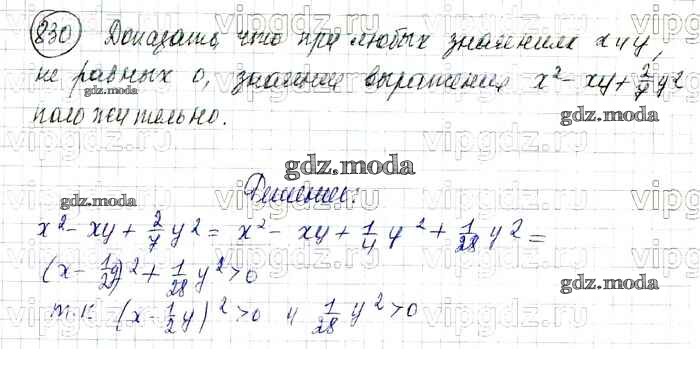 830 Доказать, что при любых значениях x и y,
не равных 0, значение выражения x² - xy + 2/7 y²
положительно.
gdz.moda
gdz.moda
Решение:
gdz.moda
x² - xy + 2/7 y² = x² - xy + 1/4 y² + 1/28 y² =
(x - 1/2 y)² + 1/28 y² > 0
gdz.moda
т.к. (x - 1/2 y)² > 0 и 1/28 y² > 0
vipgdz.ru